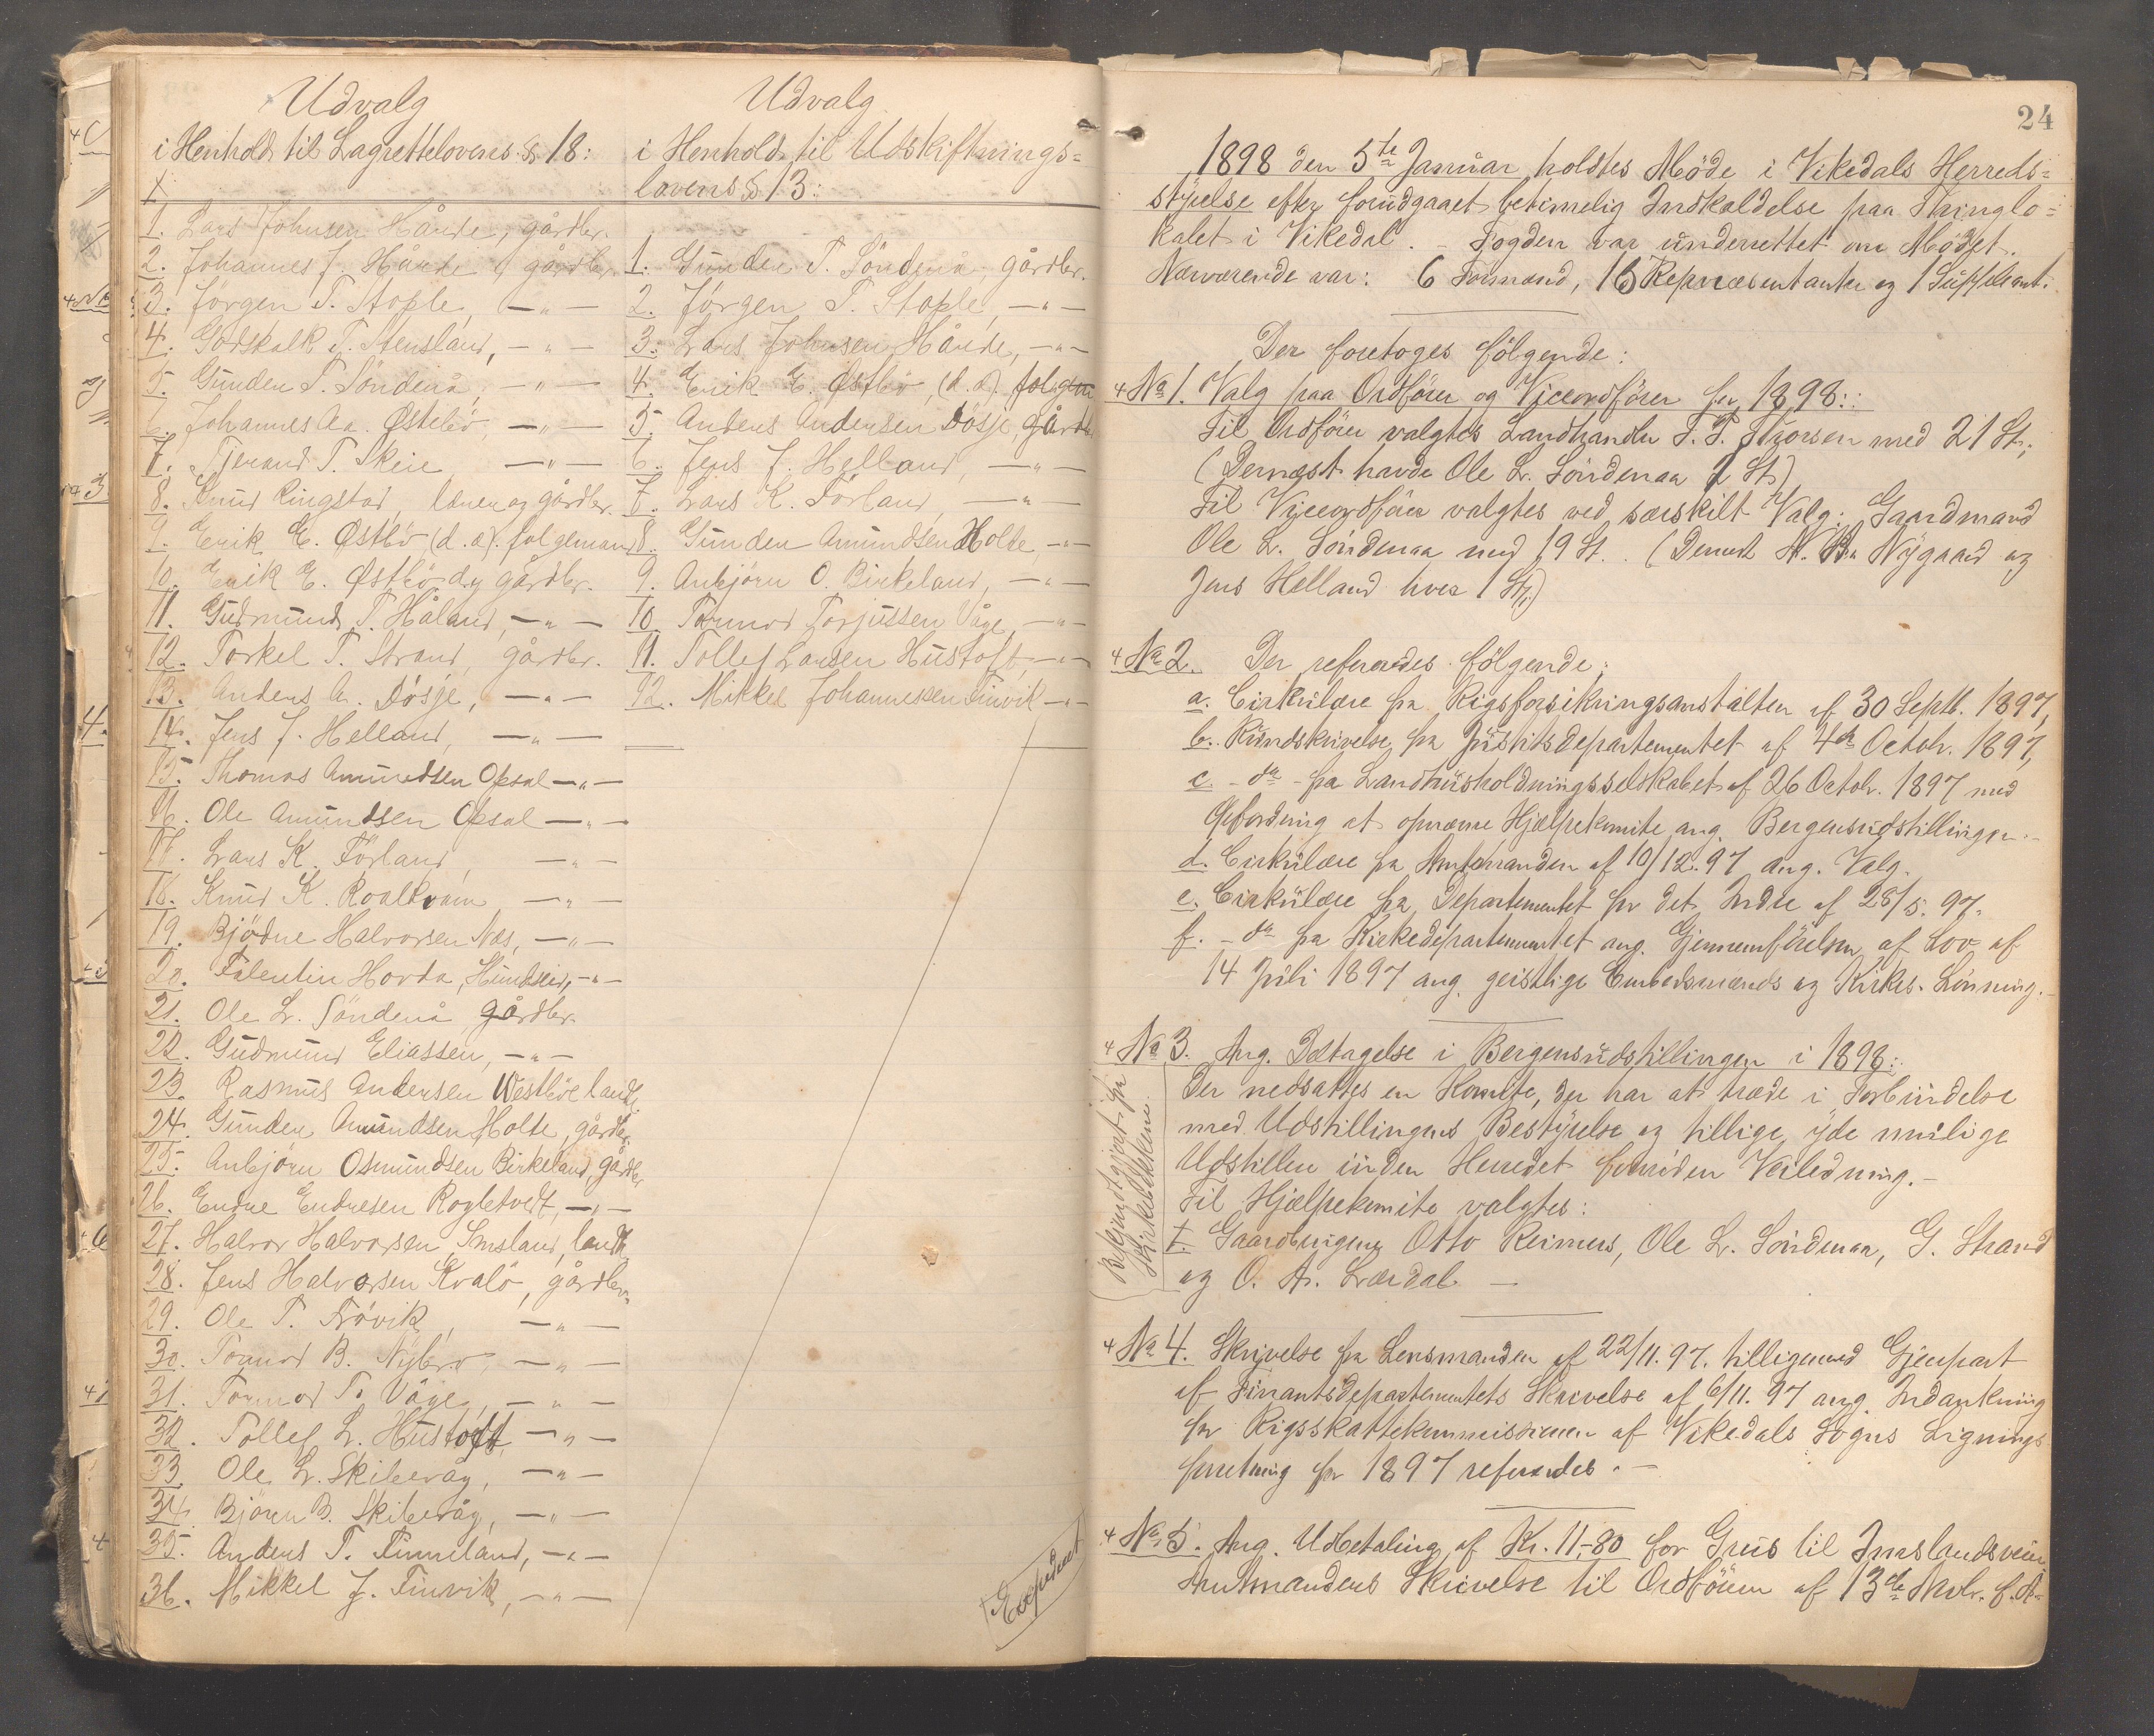 Udvalg
i Henhold til Lagrettelovens § 18:
1. Lars Johnsen Hånde, gårdbr.
2. Johannes J. Hånde, gårdbr.
3. Jörgen T. Stople, —"—
4. Godskalk T. Stensland, —"—
5. Gunden T. Söndenå, —"—
6. Johannes Aa. Østebö, —"—
7. Tjerand T. Skeie, —"—
8. Knud Ringstad, lærer og gårdbr.
9. Erik E. Østbö (d. æ). folgemand
10. Erik E. Østbö d.y gårdbr.
11. Gudmund T. Håland, —"—
12. Torkel T. Strand, gårdbr.
13. Anders A. Dösje, —"—
14. Jens J. Helland, —"—
15. Thomas Amundsen Opsal —"—
16. Ole Amundsen Opsal —"—
17. Lars K. Förland, —"—
18. Knud K. Roalkvam —"—
19. Bjödne Halvorsen Næs, —"—
20. Falentin Hovda, —"—
21. Ole L. Söndenå gårdbr.
22. Gudmund Eliassen, —"—
23. Rasmus Andersen Westböe landh.
24. Gunden Amundsen Holte, gårdbr.
25. Anbjörn Osmundsen Birkeland, gårdbr
26. Endre Endresen Rogletvedt, —"—
27. Halvor Halvorsen Imsland, landh
28. Jens Halvorsen Kvalö, gårdbr.
29. Ole T. Frövik, —"—
30. Tormod B. Nybro, —"—
31. Tormod T. Våge, —"—
32. Tollef L. Hustoft —"—
33. Ole L. Skibevåg, —"—
34. Björn B. Skibevåg, —"—
35. Anders T. Finneland, —"—
36. Mikkel J. Finvik, —"—
Udvalg
i Henhold til Udskiftnings=
lovens § 13:
1. Gunden T. Söndenå, gårdbr.
2. Jörgen T. Stople, —"—
3. Lars Johnsen Hånde, —"—
4. Erik E. Østbö, (d. æ). folgem
5. Anders Andersen Dösje, gårdb
6. Jens J. Helland, —"—
7. Lars K. Förland, —"—
8. Gunden Amundsen Holte, —"—
9. Anbjörn O. Birkeland, —"—
10. Tormod Torjussen Våge, —"—
11. Tollef Larsen Hustoft, —"—
12. Mikkel Johannessen Finvik —"—
Expederet
24
1898 den 5te Januar holdtes Möde i Vikedals Herreds=
styrelse efter forudgaaet betimelig Indkaldelse paa Thinglo=
kalet i Vikedal. – Fogden var underrettet om Mödet.
Nærværende var: 6 Formænd, 16 Repræsentanter og 1 Suppleant.
Der foretoges fölgende:
No 1. Valg paa Ordförer og Viceordförer for 1898:
Til Ordförer valgtes Landhandler T. T. Thorsen med 21 St.;
(Dernæst havde Ole L. Söndenaa 1 St.)
Til Viceordförer valgtes ved særskilt Valg: Gaardmand
Ole L. Söndenaa med 19 St. (Dernæst Nygaard og
Jens Helland hver 1 St.)
No 2. Der refereredes fölgende:
a. Cirkulære fra Rigsforsikringsanstalten af 30 Septb. 1897,
b. Rundskrivelse fra Justitsdepartementet af 4de Octob. 1897,
c. – do – fra Landhusholdningsselskabet af 26 Octob. 1897 med
Opfordring at opnævne Hjælpekomite ang. Bergensudstillingen. –
d. Cirkulære fra Amtmanden af 10/12. 97 ang. Valg.
e. Cirkulære fra Departementet for det Indre af 28/5. 97.
f. – do fra Kirkedepartementet ang. Gjennemförelsen af Lov af
14 Juli 1897 ang. geistlige Embedsmænds og Kirkes. Lönning. –
No 3. Ang. Deltagelse i Bergensudstillingen i 1898:
Der nedsattes en Komite, der har at træde i Forbindelse
med Udstillingens Bestyrelse og tillige yde mulige
Udstillere inden Herredet fornöden Veiledning. –
Til Hjælpekomite valgtes:
Gaardbruger Otto Reimers, Ole L. Söndenaa, G. Strand
og O. A. Lærdal —
Bekjendtgjort fra
Kirkebakkerne.
No 4. Skrivelse fra Lensmanden af 22/11. 97. tilligemed Gjenpart
af Finantsdepartementets Skrivelse af 6/11. 97 ang. Indankning
for Rigsskattekommissionen af Vikedals Sogns Lignings
forretning for 1897 refereredes. —
No 5. Ang. Udbetaling af Kr. 11,80 for Grus til Imslandsveien
Amtmandens Skrivelse til Ordföreren af 13de Novbr. f. A.